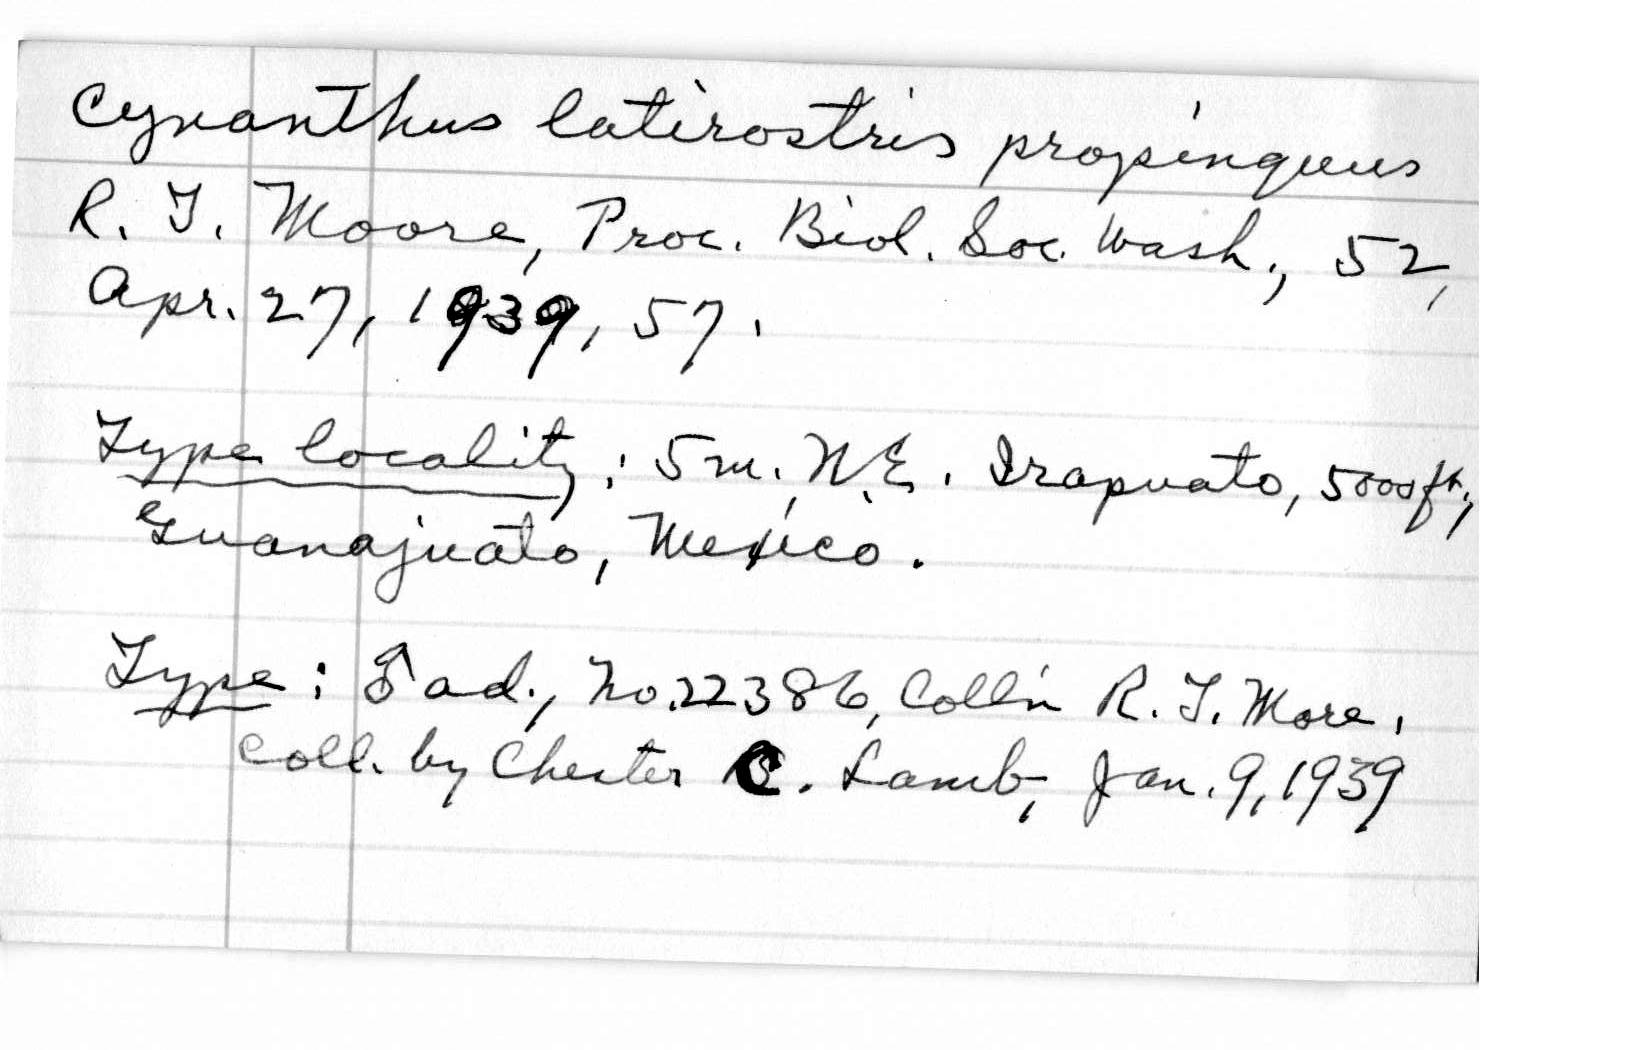 Cynanthus latirostris propinquus
R. T. Moore, Proc. Biol. Soc. Wash., 52,
Apr. 27, 1939, 57.
Type locality: 5 m. N.E. Irapuato, 5000 ft.,
Guanajuato, Mexico.
Type: ♂ ad., No. 22386, Coll'n R. T. More,
Coll. by Chester C. Lamb, Jan. 9, 1939